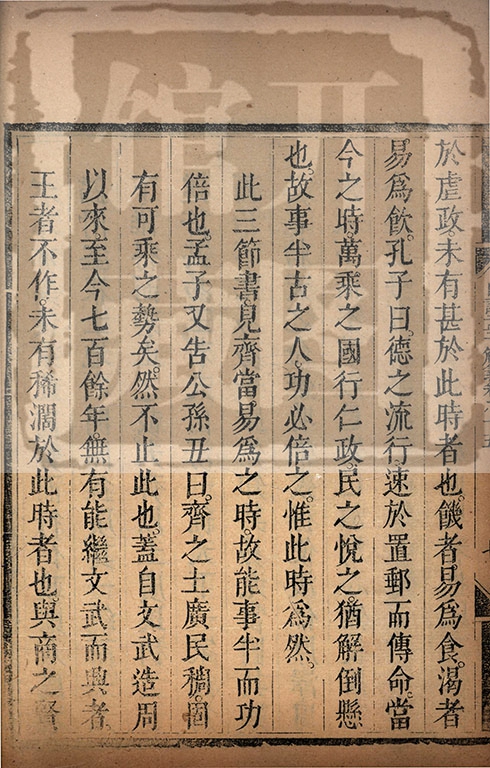 於虐政。未有甚於此時者也。饑者易爲食。渴者
易爲飲。孔子曰。德之流行速於置郵而傳命。當
今之時。萬乘之國行仁政。民之悅之。猶解倒懸
也。故事半古之人。功必倍之。惟此時爲然。
此三節書。見齊當易爲之時。故能事半而功
倍也。孟子又告公孫丑曰。齊之土廣民稠。固
有可乘之勢矣。然不止此也。蓋自文武造周
以來至今七百餘年。無有能繼文武而興者
王者不作。未有稀濶於此時者也。與商之賢